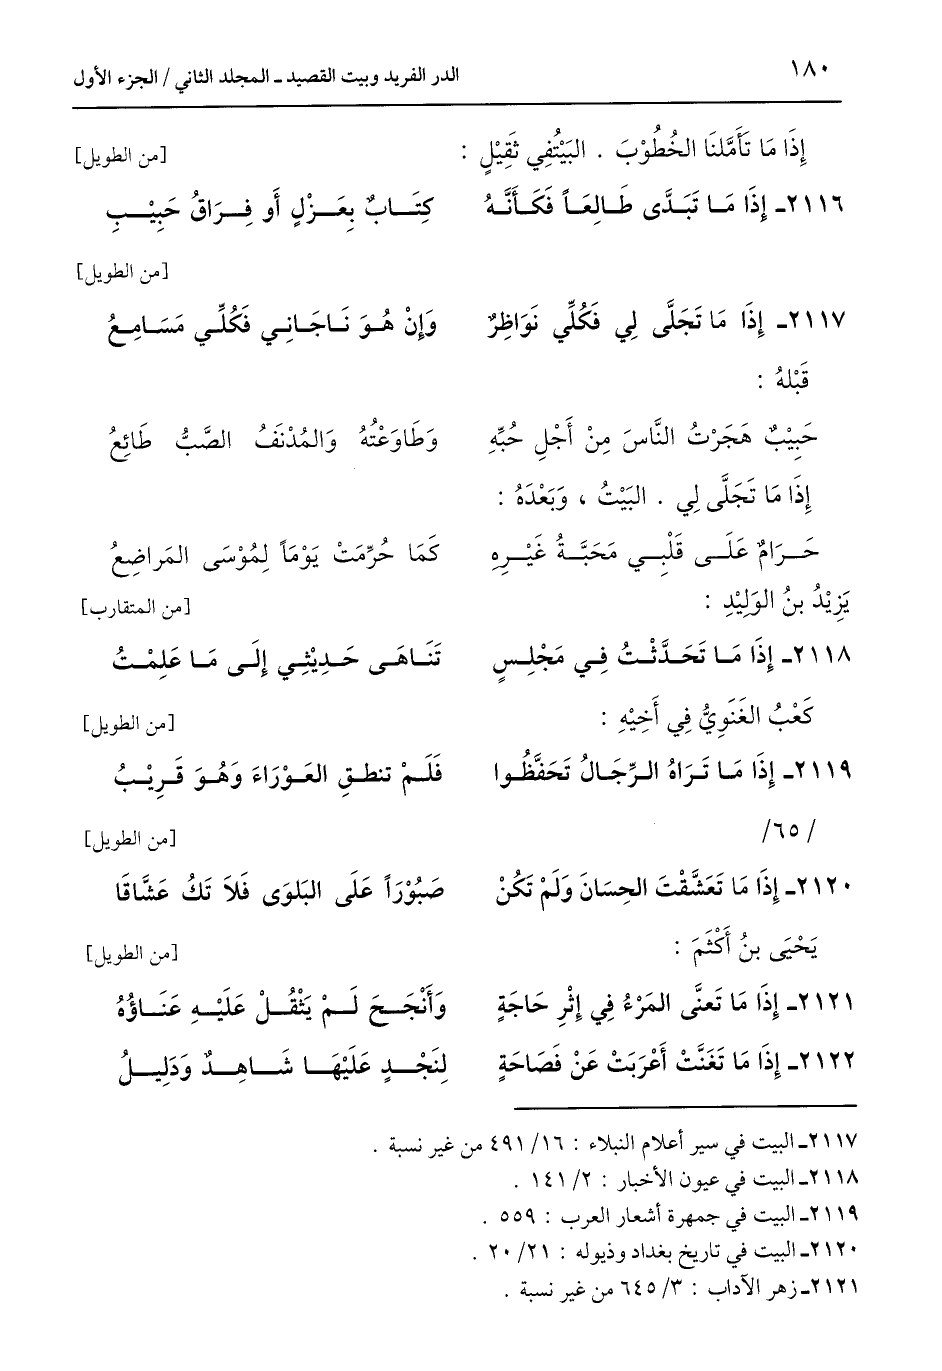 ١٨٠ الدر الفريد وبيت القصيد ـ المجلد الثاني / الجزء الأول
إِذَا مَا تَأَمَّلنَا الخُطُوْبَ . البَيْتُفِي ثَقِيْلٍ : [من الطويل]
٢١١٦ـ إِذَا مَـا تَبَـدَّى طَـالِعَـاً فَكَـأَنَّـهُ كِتَـابٌ بِعَـزْلٍ أَو فِـرَاقُ حَبِيْـبِ
[من الطويل]
٢١١٧ـ إِذَا مَا تَجَلَّى لِي فَكُلِّي نَوَاظِرٌ وَإِنْ هُـوَ نَـاجَـانِـي فَكُلِّـي مَسَـامِـعُ
قَبْلهُ :
حَبِيْبٌ هَجَرْتُ النَّاسَ مِنْ أَجْلِ حُبِّهِ وَطَاوَعْتُهُ وَالمُدْنَفُ الصَّبُّ طَائِعُ
إِذَا مَا تَجَلَّى لِي . البَيْتُ ، وَبَعْدَهُ :
حَـرَامٌ عَلَـى قَلْبِـي مَحَبَّـةُ غَيْـرِهِ كَمَا حُرِّمَتْ يَوْمَاً لِمُوْسَى المَراضِعُ
يَزِيْدُ بنُ الوَلِيْدِ : [من المتقارب]
٢١١٨ـ إِذَا مَـا تَحَـدَّثْـتُ فِـي مَجْلِـسٍ تَنَـاهَـى حَـدِيْثِـي إِلَـى مَـا عَلِمْـتُ
كَعْبُ الغَنَوِيُّ فِي أَخِيْهِ : [من الطويل]
٢١١٩ـ إِذَا مَـا تَـرَاهُ الـرِّجَـالُ تَحَفَّظُـوا فَلَـمْ تنطـقِ العَـوْرَاءَ وَهُـوَ قَـرِيْـبُ
/ ٦٥/ [من الطويل]
٢١٢٠ـ إِذَا مَا تَعَشَّقْتَ الحِسَانَ وَلَمْ تَكُنْ صَبُوْرَاً عَلَى البَلوَى فَلاَ تَكُ عَشَّاقَا
يَحْيَى بنُ أَكْثَمَ : [من الطويل]
٢١٢١ـ إِذَا مَا تَعنَّى المَرْءُ فِي إِثْرِ حَاجَةٍ وَأَنْجَـحَ لَـمْ يَثْقُـلْ عَلَيْـهِ عَنَـاؤُهُ
٢١٢٢ـ إِذَا مَا تَغَنَّتْ أَعْرَبَتْ عَنْ فَصَاحَةٍ لِنَجْـدٍ عَلَيْهَـا شَـاهِـدٌ وَدَلِيـلُ
٢١١٧ـ البيت في سير أعلام النبلاء : ١٦/ ٤٩١ من غير نسبة .
٢١١٨ـ البيت في عيون الأخبار : ٢/ ١٤١ .
٢١١٩ـ البيت في جمهرة أشعار العرب : ٥٥٩ .
٢١٢٠ـ البيت في تاريخ بغداد وذيوله : ٢١/ ٢٠ .
٢١٢١ـ زهر الآداب : ٣/ ٦٤٥ من غير نسبة .